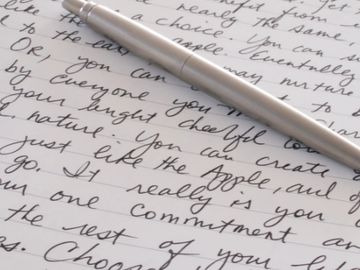 nearly the same
like the a choice. You can
to the apple. Eventually
OR, you can may nurture
by everyone you to
your bright cheerful
nature. You can create
just like the Apple, and
go. It really is you
our one commitment an
the rest of your
as. Choose